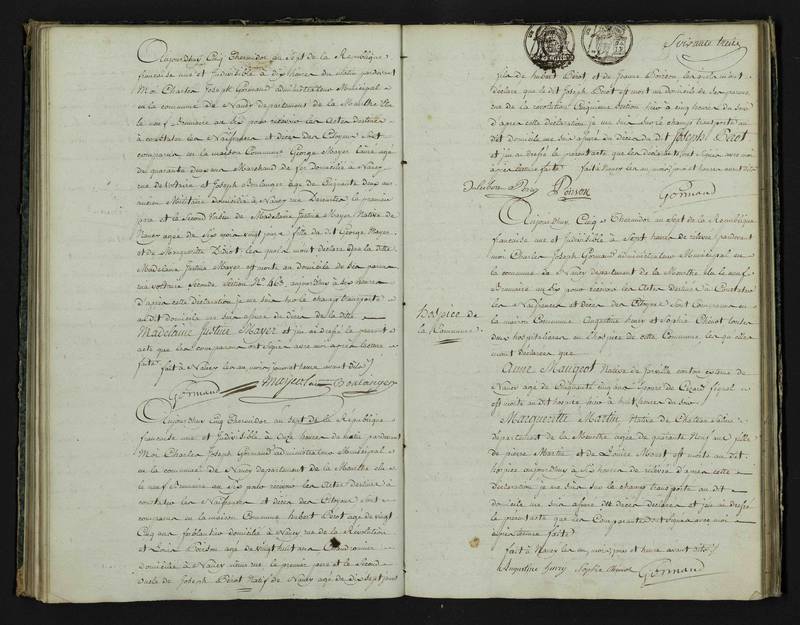 Aujourdhuy Cinq Thermidor au Sept de la Republique
francaise une et Indivisible à dix heures du Matin pardevant
Moi Charles Joseph Gormand administrateur Municipal
en la commune de Nancy departement de la Meurthe Elu
le neuf Brumaire an Six pour recevoir les Actes destinés
à constater les Naissances et deces des Citoyens Sont
comparus en la maison Commune George Mayer Luire agé
de quarante deux ans Marchand de fer domicilié à Nancy
rue de Voltaire et Joseph Boulanger agé de Cinquante deux ans
ancien Militaire domicilié à Nancy rue le premier
pere et le Second de Madelaine Justice Mayer Native de
Nancy agée de Six mois vingt jours fille du dit George Mayer
et de Marguerite Didiot; les quels m'ont declaré que la ditte
Madelaine Justice Mayer est morte au domicile de ses parens
rue voltaire seconde Section N.º 463, aujourdhuy à Six heures
d'apres cette declaration je me suis sur le champ transporté
au dit domicile me suis assure du deces de la ditte
Madelaine Justice Mayer et j'ai dressé le present
acte que les comparans ont signé avec moi après lecture
faite. fait à Nancy les an, mois, jour et heure avant dits
Gormand Mayer Boulanger
Aujourdhuy Cinq Thermidor au Sept de la République
francaise une et Indivisible à Onze heures de matin pardevant
Moi Charles Joseph Gormand administrateur Municipal
en la commune de Nancy departement de la Meurthe elu
le neuf Brumaire an Six pour recevoir les Actes destinés à
constater les Naissances et deces des Citoyens Sont
comparus en la maison Commune hubert Perot agé de vingt
Cinq ans ferblantier domicilié à Nancy rue de la Révolution
et Louis Poirson agé de vingt huit ans
domicilié à Nancy même rue le premier frere et le Second
oncle de Joseph Perot Natif de Nancy agé de dix sept jours
Soixante treize
fils de hubert Perot et de Jeanne Poirson, lesquels m'ont
declaré que le dit Joseph Perot est mort au domicile de ses parens
rue de la revolution Cinquieme Section hier à cinq heures du Soir
d'apres cette declaration je me suis sur le champ transporté au
dit domicile me suis assure du deces du dit Joseph Perot
et j'ai dressé le present acte que les declarants ont signé avec moi
apres lecture faite. fait à Nancy les an, mois, jour et heure avant dits
Perot Poirson
Gormand
Aujourdhuy Cinq Thermidor au Sept de la République
francaise une et Indivisible à Sept heures de relevée pardevant
moi Charles Joseph Gormand administrateur Municipal en
la commune de Nancy departement de la Meurthe elu le neuf
Brumaire an Six pour recevoir les Actes destinés à Constater
les Naissances et deces des Citoyens Sont Comparus en
la maison Commune Augustine henry et Sophie Chenot toutes
deux hospitalieres à l'hospice de cette Commune les quelles
m'ont declarées que
Hospice de
la Commune.
Anne Maugeot Native de
Nancy agée de Cinquante Cinq ans Epouse de
est morte au dit hospice hier à huit heures du soir
Marguerite Martin Native de Chateau Salins
departement de la Meurthe agée de quarante Neuf ans fille
de pierre Martin et de Louise est morte au dit
hospice aujourdhuy à Six heures de relevée d'apres cette
declaration je me suis sur le champ transporté au dit
domicile me suis assure des deces declarés et j'ai dressé
le present acte que les Comparantes ont Signé avec moi
après lecture faite.
fait à Nancy les an, mois, jour et heure avant dits
Augustine henry Sophie Chenot Gormand